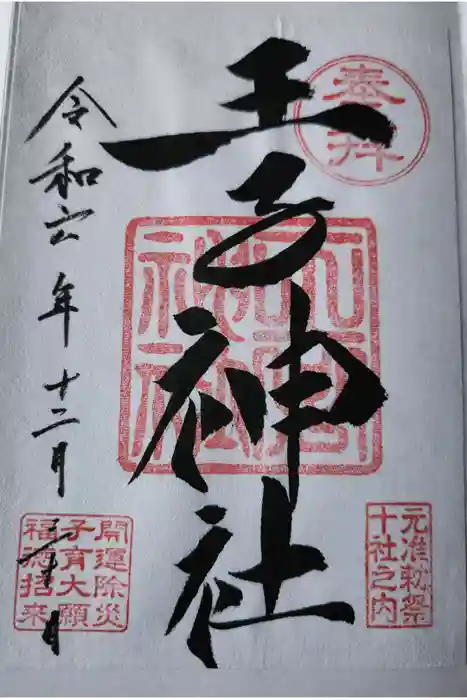 奉拝
王子神社
元准勅祭
十社之内
令和六年十二月
開運除災
子育大願
福徳招来